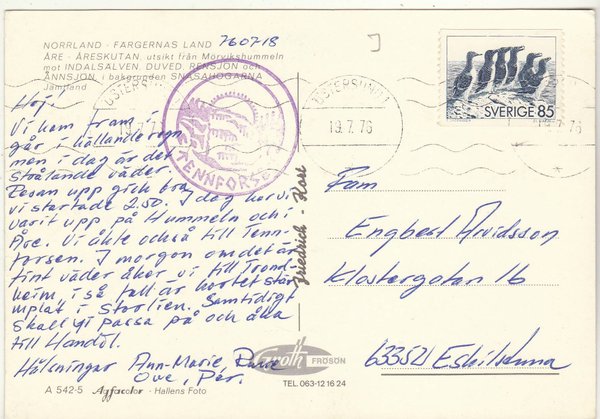 NORRLAND - FÄRGERNAS LAND
760718
ÅRE - ÅRESKUTAN, utsikt från Mörvikshummeln
mot INDALSÄLVEN, DUVED, RENSJÖN och
ÄNNSJÖN, i bakgrunden SNASAHÖGARNA
Jämtland
Hej!
Vi kom fram i
går i hällande regn
men i dag är det
strålande väder.
Resan upp gick bra
vi startade 2.50. I dag har vi
varit upp på Hummeln och i
Åre. Vi åkte också till Tenn-
forsen. I morgon om det är
fint väder åker vi till Trond-
heim i så fall är kortet stäm-
mplat i Storlien. Samtidigt
skall vi passa på och åka
till Handöl.
Hälsningar Ann-Marie,
Ove, Per.
TENNFORSEN
ÖSTERSUND
ÖSTERSUND 1
19.7.76
SVERIGE 85
Friedrich - Kort
Fam
Engbert Arvidsson
Klostergatan 16
63352 Eskilstuna
Grenoth FRÖSÖN
TEL. 063-12 16 24
A 542-5 Agfacolor - Hallens Foto